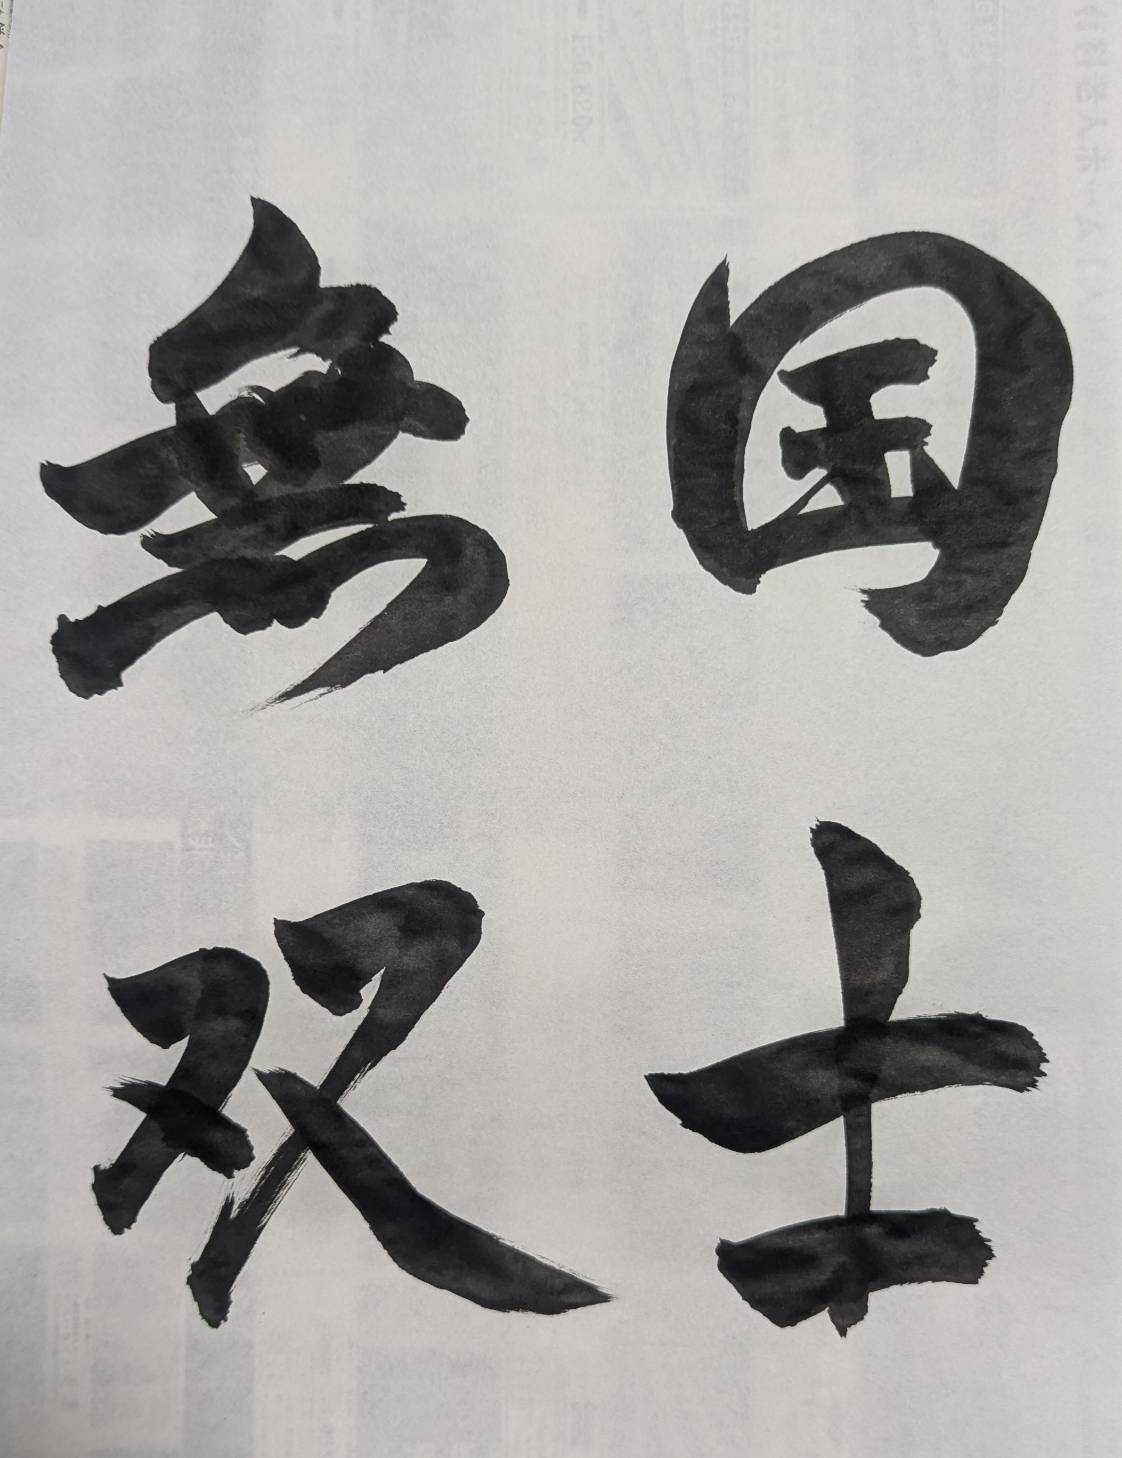 国士
無双